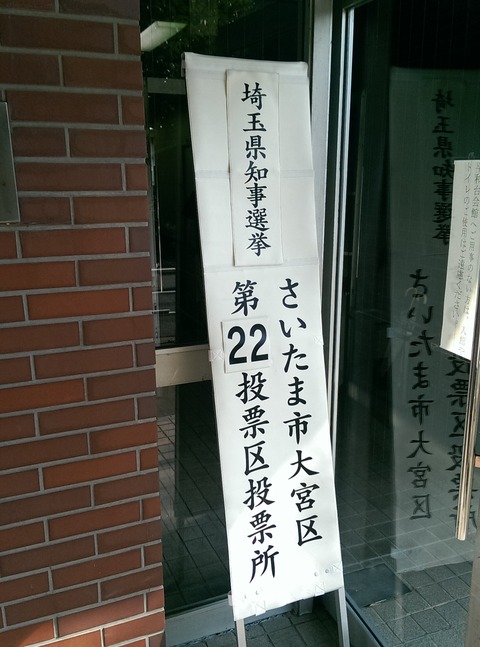 埼玉県知事選挙
さいたま市大宮区
第22投票区投票所